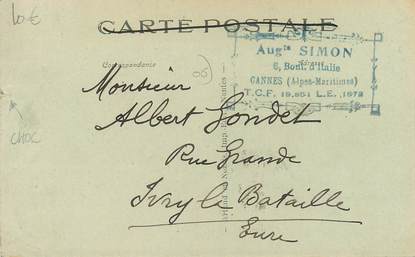 10 €
CARTE POSTALE
Correspondance
Augte SIMON
6, Boul. d'Italie
CANNES (Alpes-Maritimes)
T.C.F. 19,851 L.E. 1972
CHOC
Monsieur
Albert Gondet
Rue Grande
Ivry la Bataille
Eure